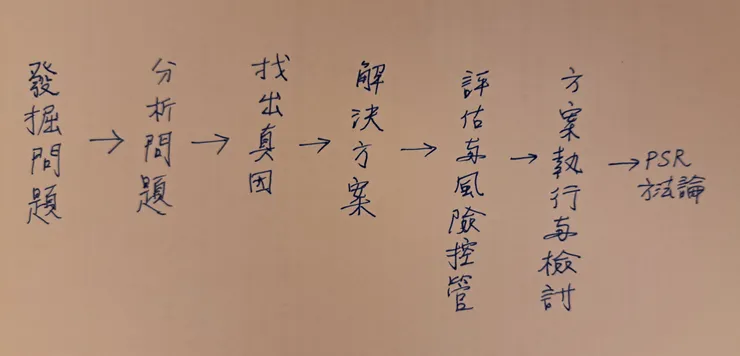 發掘問題
→
分析問題
→
找出真因
→
解決方案
→
評估与風險控管
→
方案執行与檢討
→
PSR
方法論